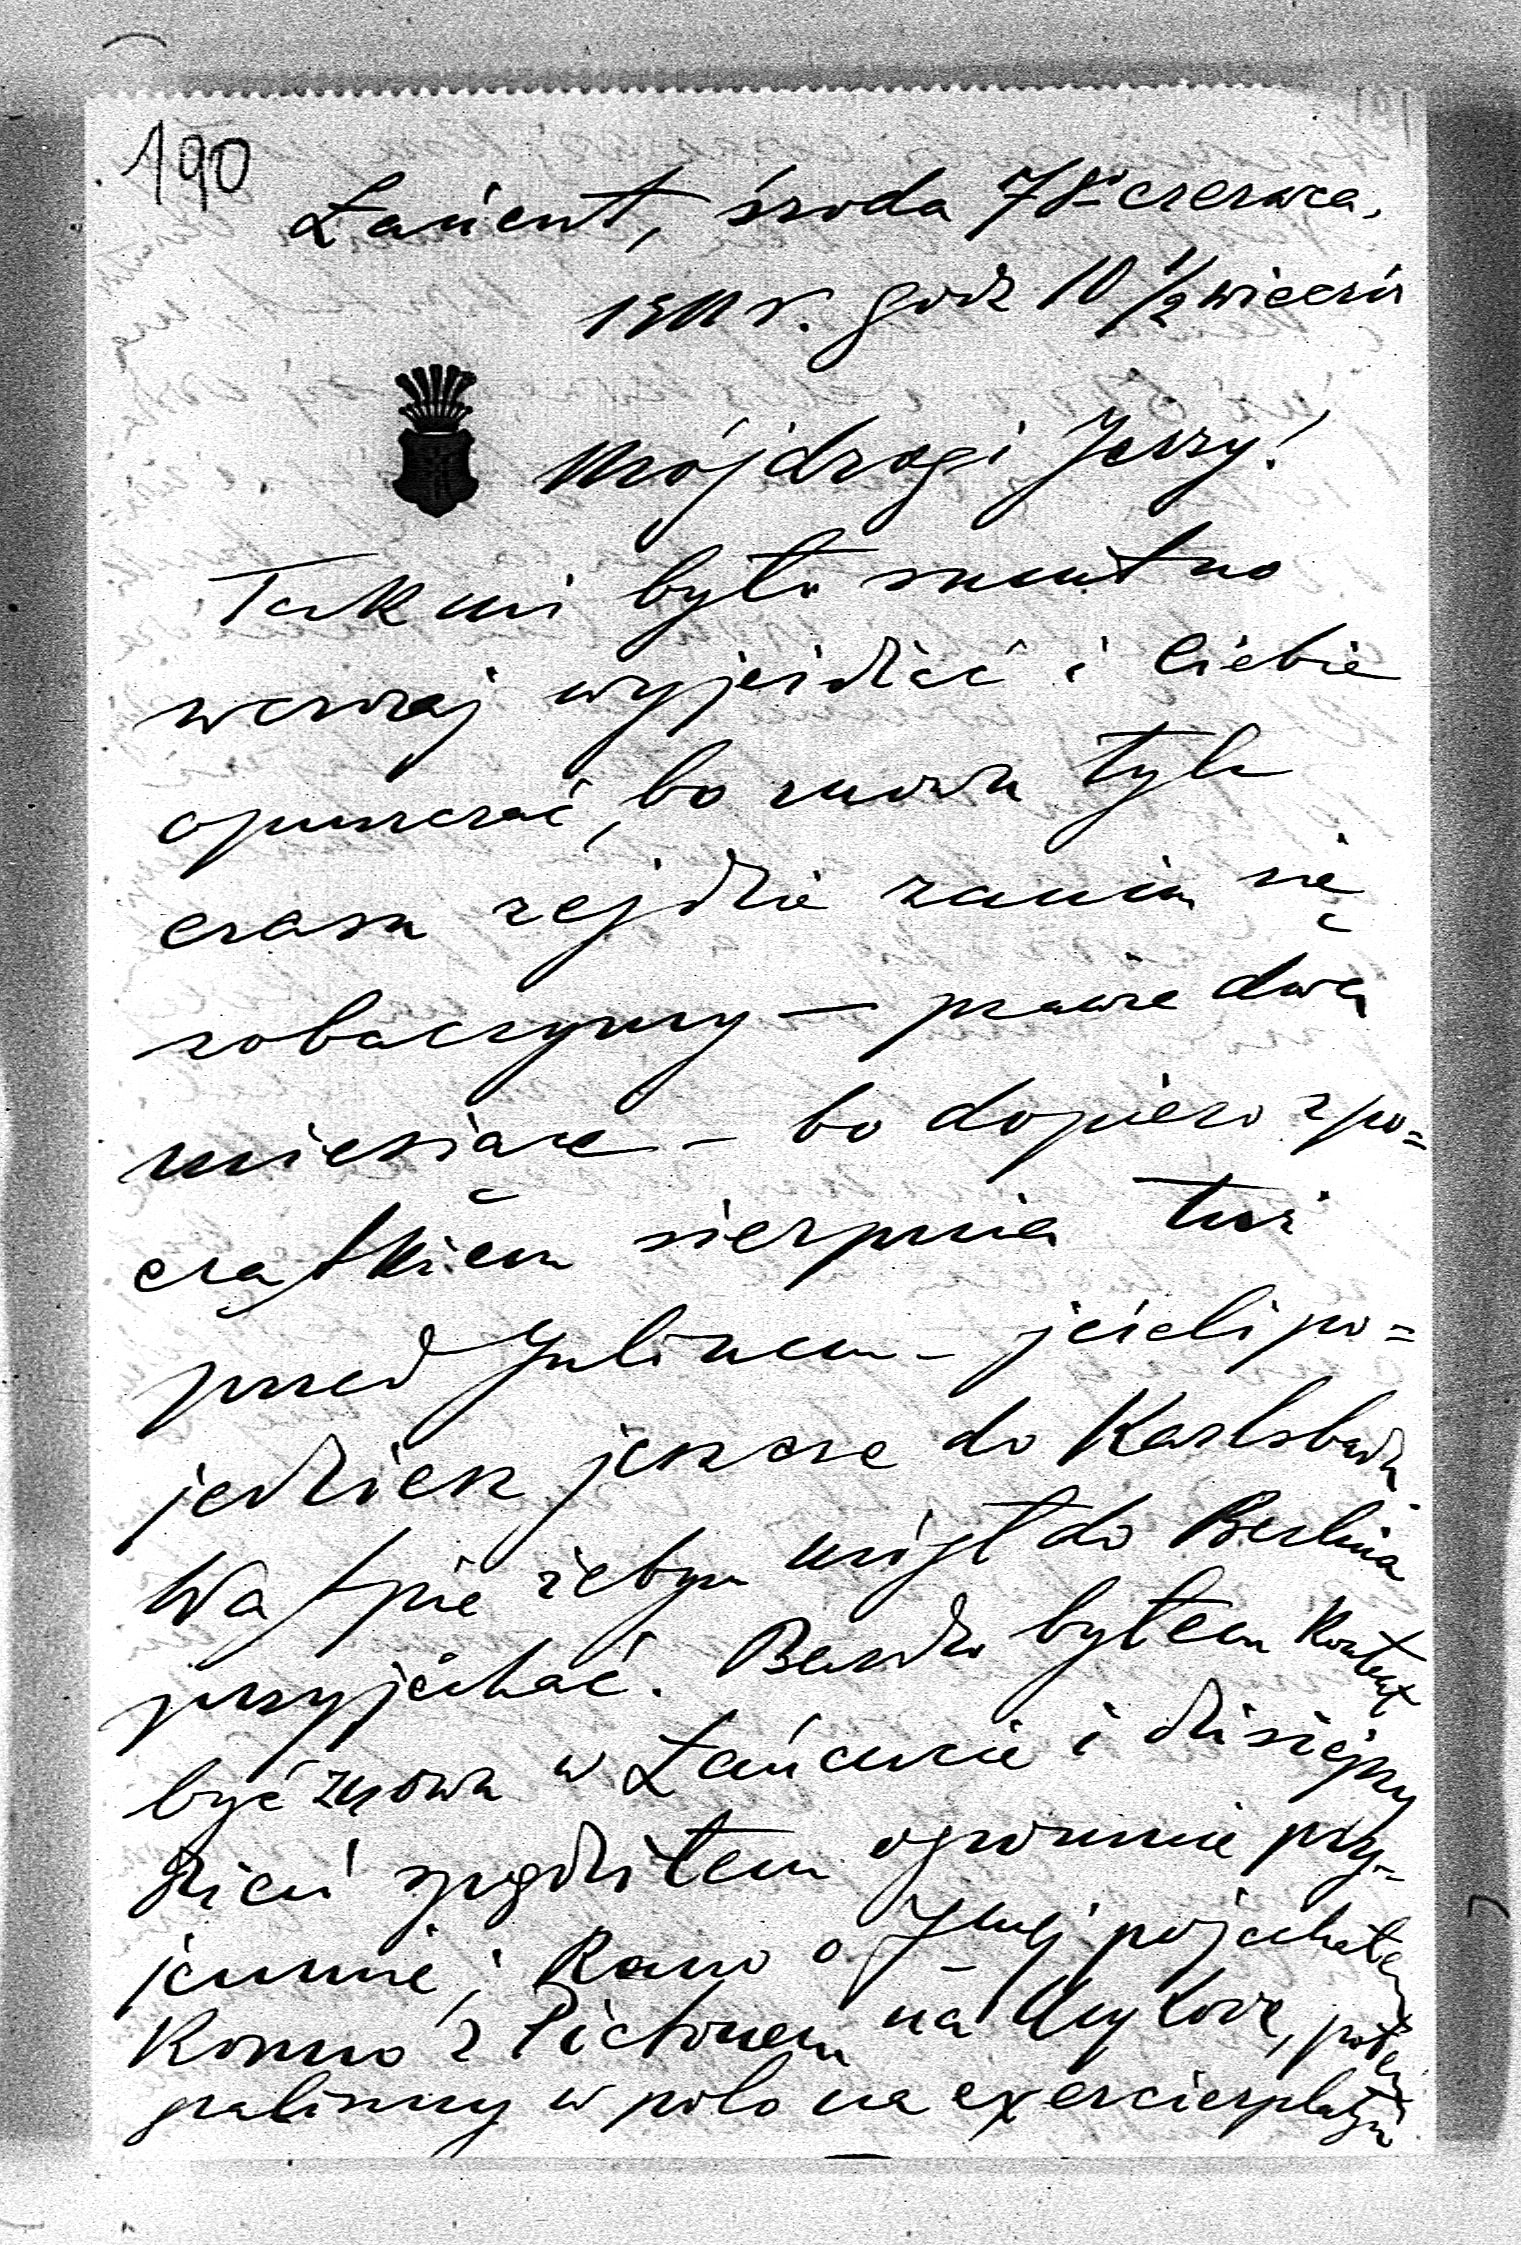 190
Łańcut, środa 7go czerwca,
1911 r. godz 10 1/2 wieczór
Mój drogi Jerzy!
Tak mi było smutno
wczoraj wyjeżdżać i Ciebie
opuszczać, bo znowu tyle
czasu zejdzie zanim się
zobaczymy — prawie dwa
miesiące — bo dopiero z po=
czątkiem sierpnia tuż
przed Julinem — jeżeli po=
jedziesz jeszcze do Karlsbadu
Wątpię żebym mógł do Berlina
przyjechać. Bardzo byłem kontent
być znowu w Łańcucie i dzisiejszy
dzień spędziłem ogromnie przy=
jemnie; Rano o 7mej pojechałem
konno z Pictonem na, potem
graliśmy w polo na exercierplatzu